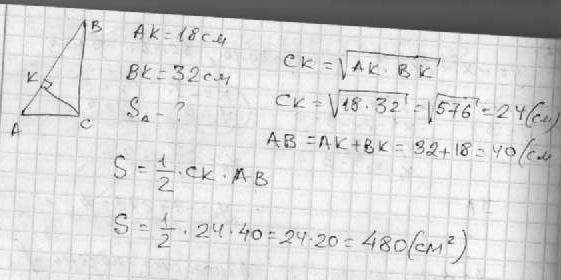 B
K
A
C
AK = 18 см
BK = 32 см
S△ - ?
CK = √AK · BK
CK = √18 · 32 = √576 = 24 (см)
AB = AK + BK = 32 + 18 = 40 (см
S = 1/2 · CK · AB
S = 1/2 · 24 · 40 = 24 · 20 = 480 (см²)